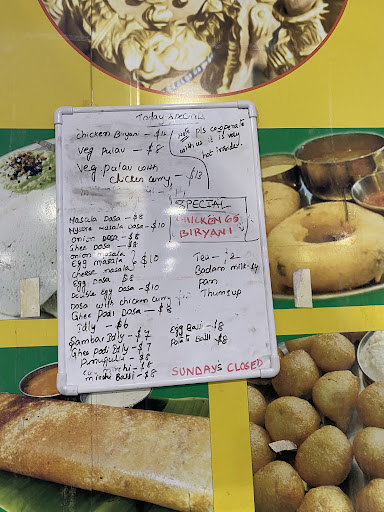 Today Specials
Chicken Biryani - $14
Veg Pulav - $8
Veg pulav with
chicken curry
- $13
Note pls cooperate
with us it is very
hot inside.
SPECIAL
CHICKEN 65
BIRYANI
Masala Dosa - $8
Mysore masala Dosa - $10
onion Dosa - $8
Ghee Dosa - $8
onion masala
Egg masala } $10
cheese masala
Egg Dosa $8
Double Egg Dosa - $10
Dosa with chicken curry
Ghee Podi Dosa - $8
Idly - $6
Sambar Idly - $7
Ghee Podi Idly - $7
Punugulu - $8
cut mirchi - $8
mirchi Bajji - $8
Tea - 2
Badam milk - $4
Pani
Thumsup
Egg Bajji - $8
Potato Bajji - $8
SUNDAYS CLOSED